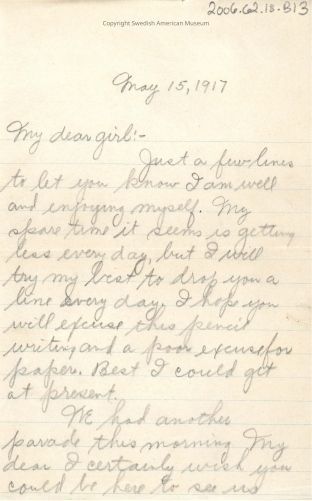 2006.62.13.B13
Copyright Swedish American Museum
May 15, 1917
My dear girl:-
Just a few lines
to let you know I am well
and enjoying myself. My
spare time it seems is getting
less every day, but I will
try my best to drop you a
line every day. I hope you
will excuse this pencil
writing and a poor excuse for
paper. Best I could get
at present.
We had another
parade this morning. My
dear I certainly wish you
could be here to see us